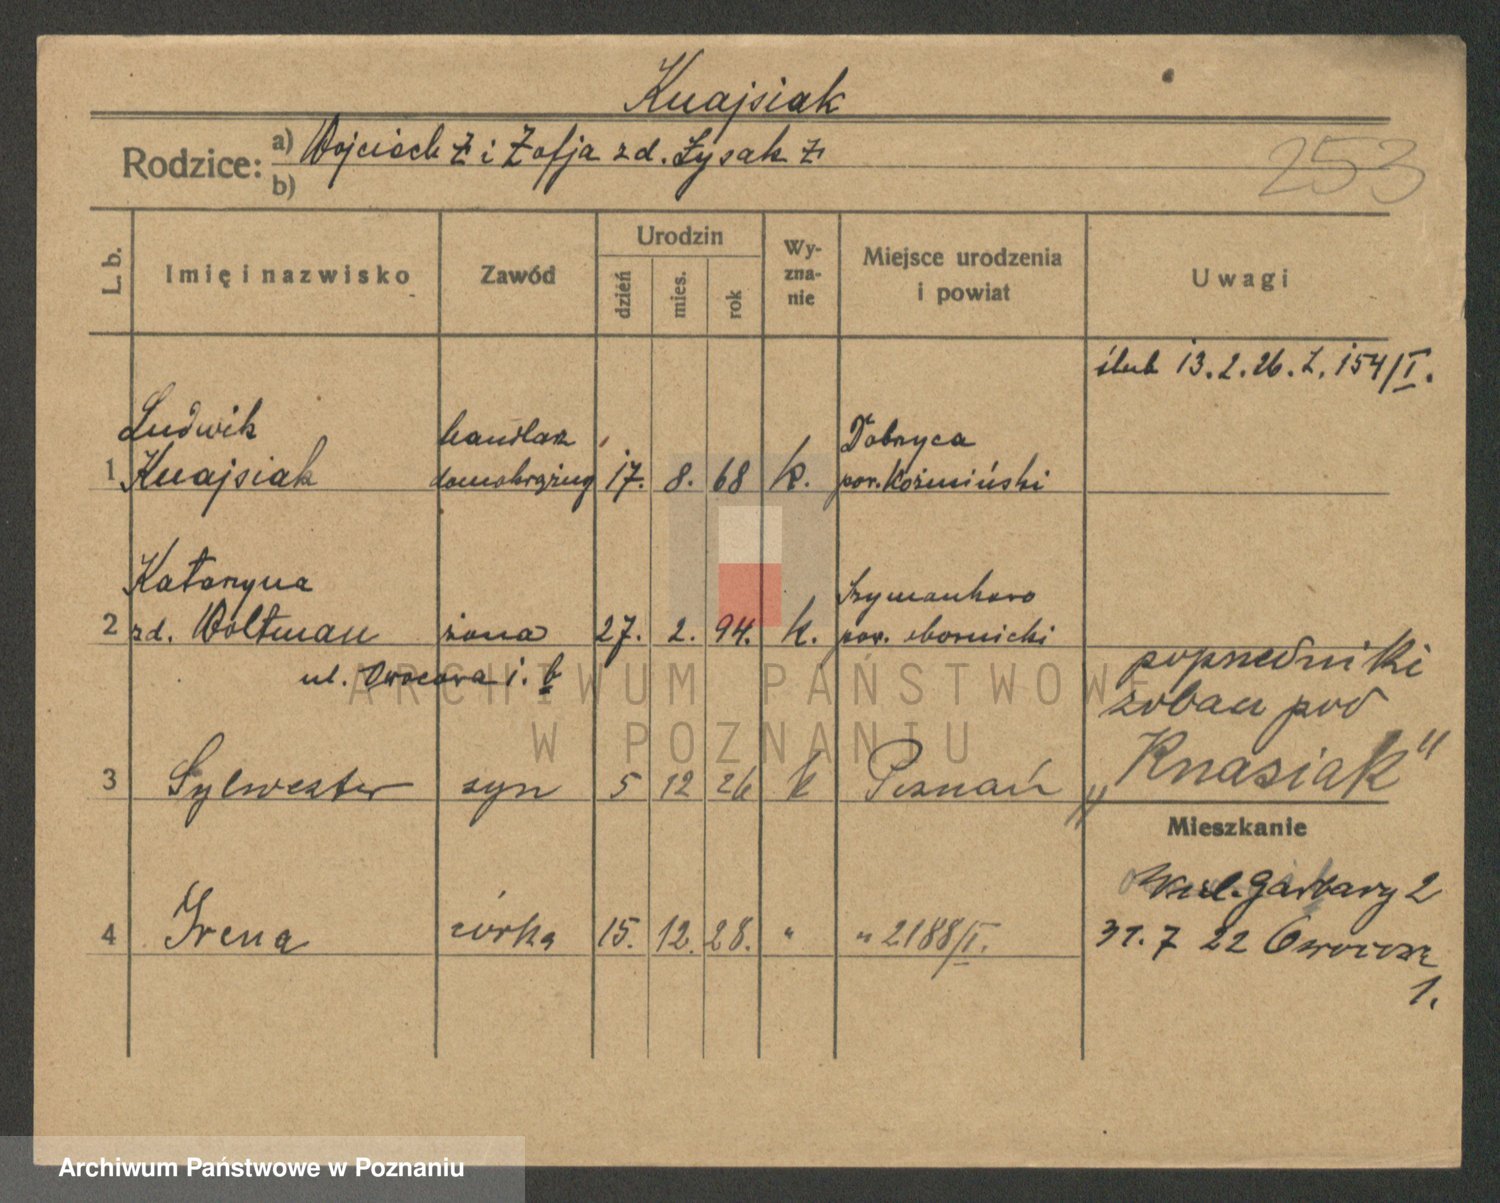 Knajsiak
Rodzice: a) Wojciech Ż i Zofja zd. Łysak Ż
b)
253
L. b.
Imię i nazwisko
Zawód
Urodzin
dzień mies. rok
Wy-
zna-
nie
Miejsce urodzenia
i powiat
Uwagi
ślub 13.2.26. L. 154/I.
Ludwik handlarz Dobrzyca
1 Knajsiak domokrążny 17. 8. 68 k. pow. Koźmiński
Katarzyna Szymankowo
2 zd. Woltman żona 27. 2. 94. k. pow. obornicki
ul. Owocowa 1.
poprzedniki
zobacz pod
„Knasiak"
3 Sylwester syn 5 12 26 k Poznań
Mieszkanie
ul. Garbary 2
4 Irena córka 15. 12. 28. " " 2188/I.
31.7 22 Owocowa
1.
ARCHIWUM PAŃSTWOWE
W POZNANIU
Archiwum Państwowe w Poznaniu